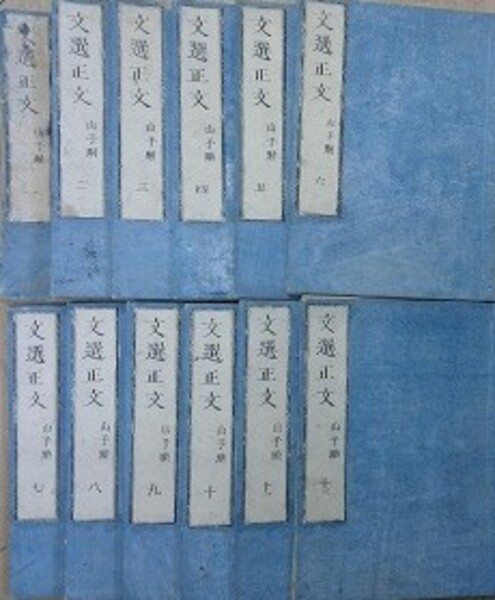 文選正文 山子點 一
文選正文 山子點 二
文選正文 山子點 三
文選正文 山子點 四
文選正文 山子點 五
文選正文 山子點 六
文選正文 山子點 七
文選正文 山子點 八
文選正文 山子點 九
文選正文 山子點 十
文選正文 山子點 十一
文選正文 山子點 十二